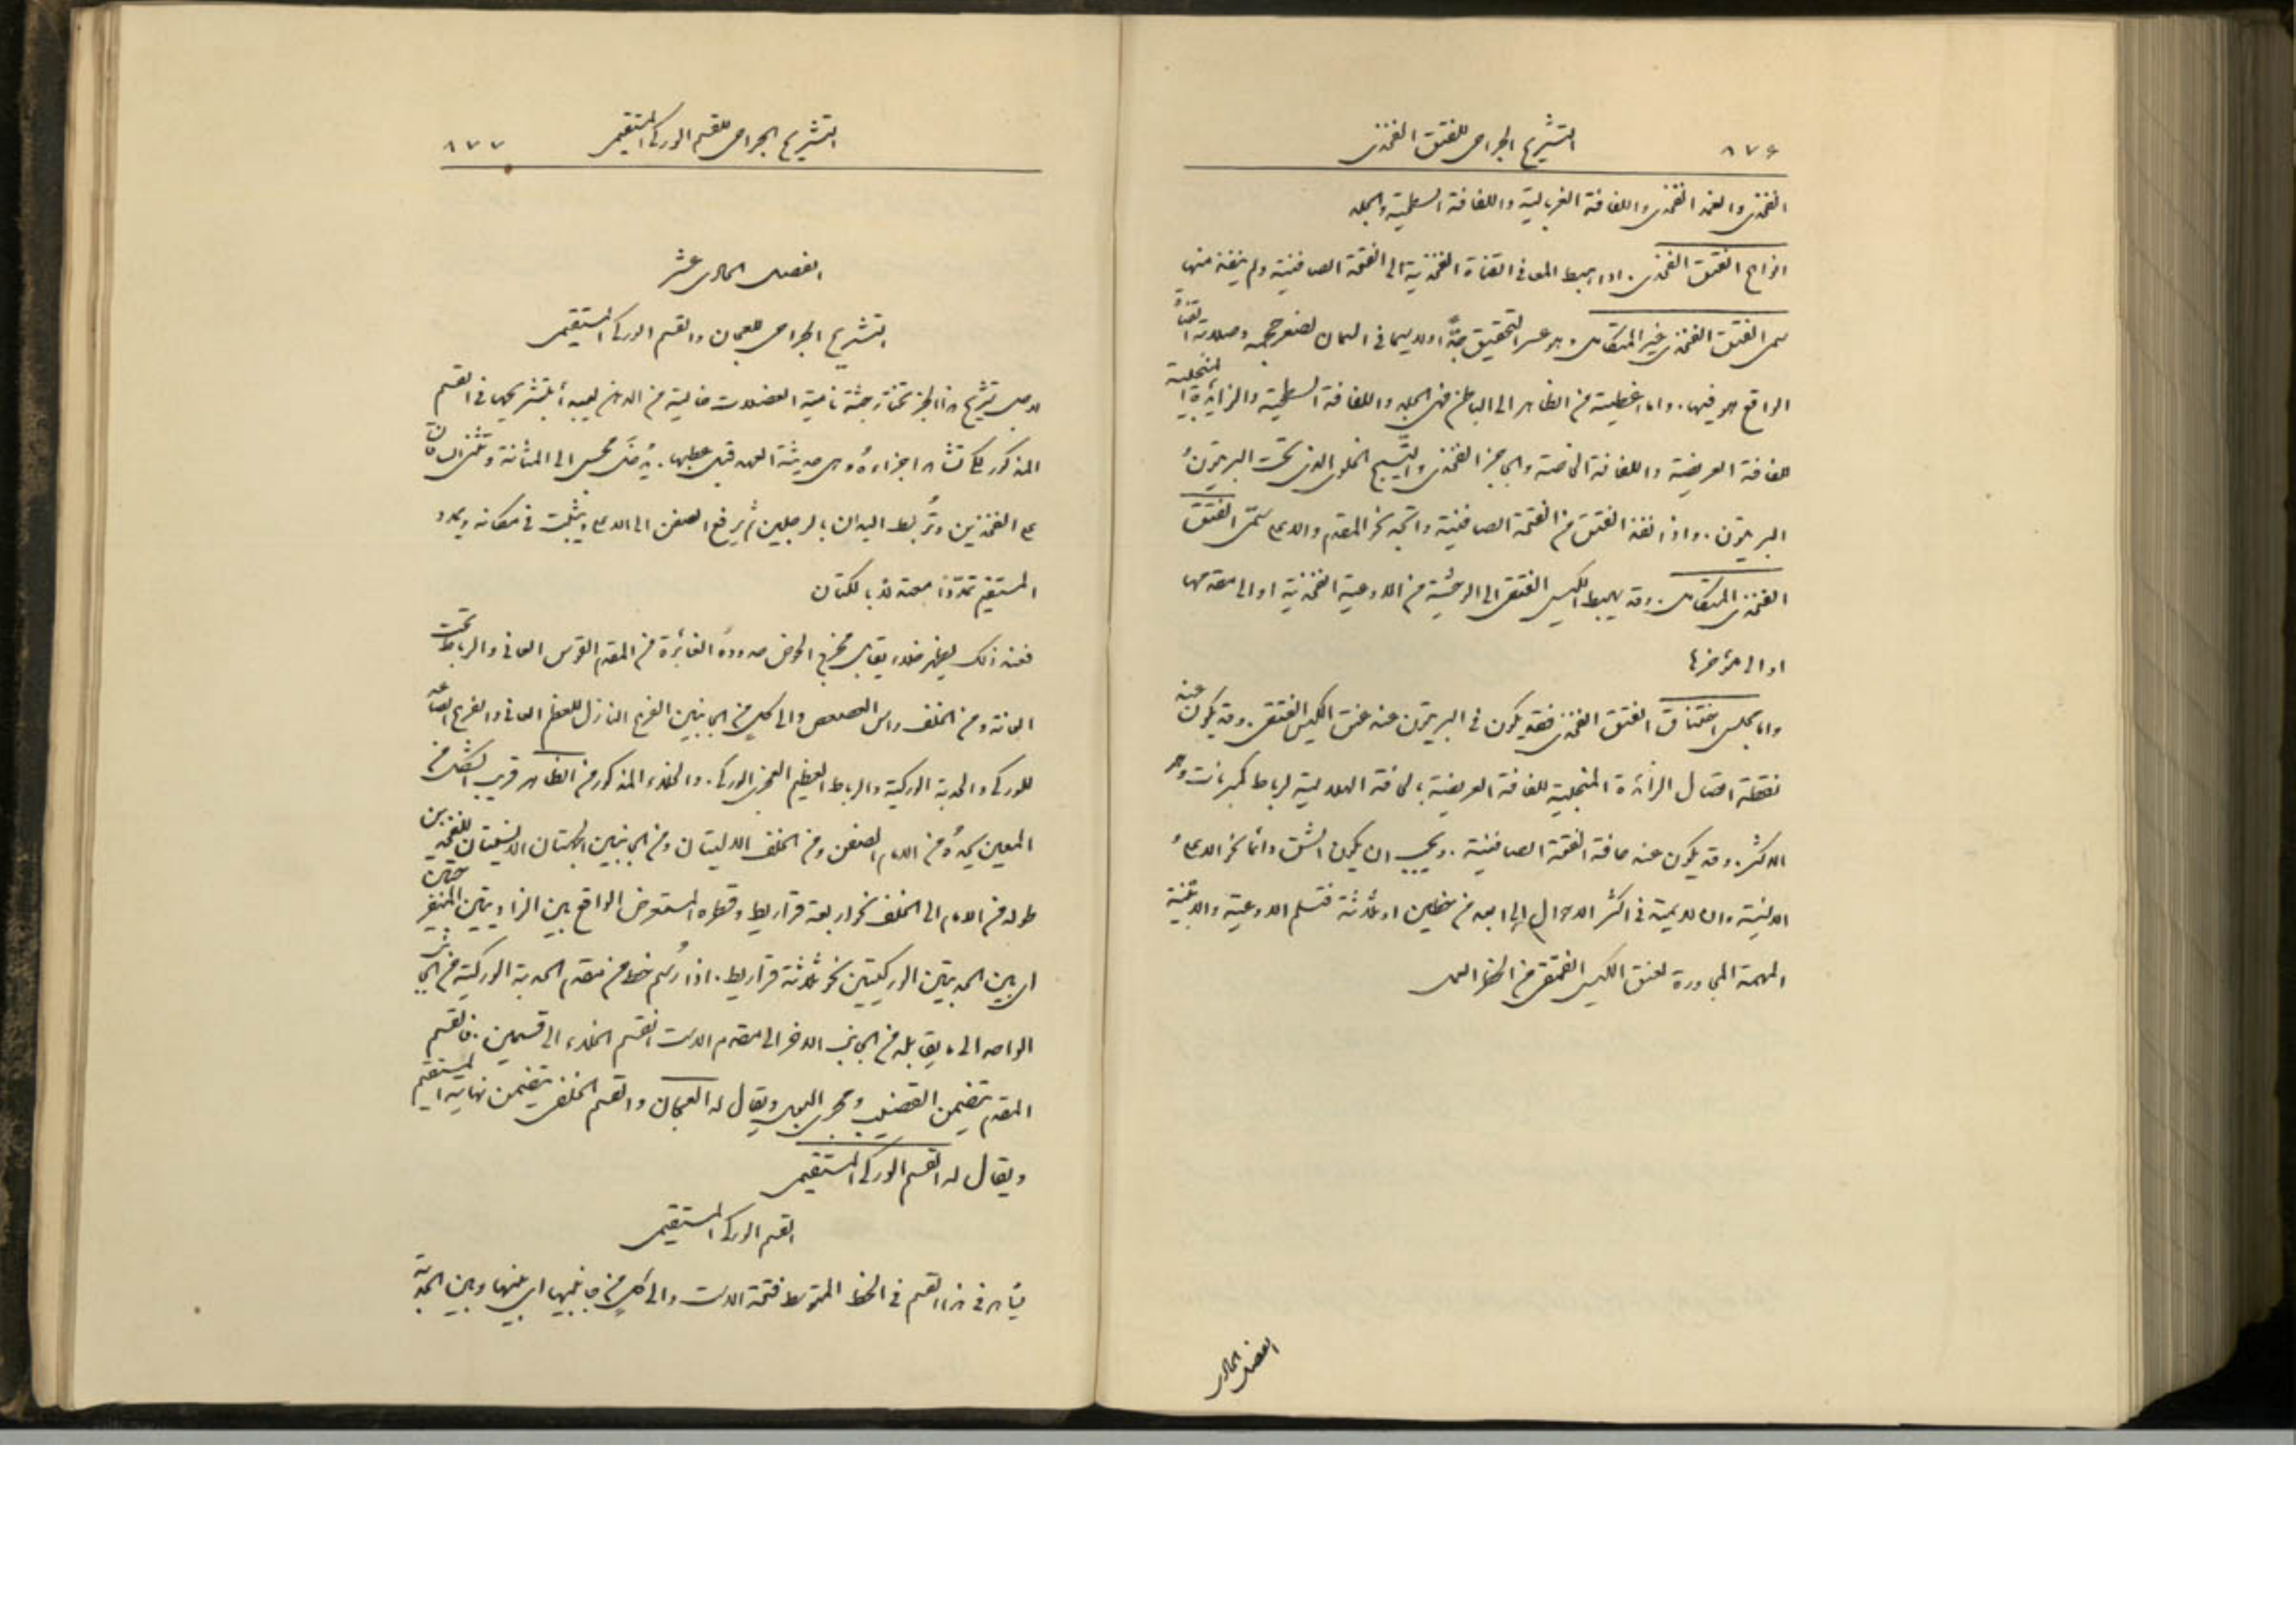 ٨٧٦ التشريح الجراحى للفتق الفخذى
الفخذى والغمد الفخذى واللفافة الغربالية واللفافة السطحية والجلد
انواع الفتق الفخذى. اذا هبط المعا فى القناة الفخذية الى الفتحة الصافنية ولم ينفذ منها
سمى الفتق الفخذى غير المتكامل وهو عسر التحقيق جدًّا ولاسيما فى السمان لصغر حجمه وصلابة القناة
الواقع هو فيها. واما اغطيته من الظاهر الى الباطن فهى الجلد واللفافة السطحية والزائدة المنجلية
للفافة العريضة واللفافة الخاصة والحاجز الفخذى والنسيج الخلوى الذى تحت البريتون
البريتون. واذا نفذ الفتق من الفتحة الصافنية واتجه نحو المقدم والاعلى سمّى الفتق
الفخذى المتكامل. وقد يهبط الكيس الفتقى الى الوحشية من الاوعية الفخذية او الى مقدمها
او الى مؤخرها
واما مجلس اختناق الفتق الفخذى فقد يكون فى البريتون عند عنق الكيس الفتقى. وقد يكون عند
نقطة اتصال الزائدة المنجلية للفافة العريضة بالحافة الهلالية لرباط كمبرنات وهو
الاكثر. وقد يكون عند حافة الفتحة الصافنية. ويجب ان يكون الشق دائما نحو الاعلى و
الانسية وان لا يمتد فى اكثر الاحوال الى ابعد من خطين او ثلاثة فتسلم الاوعية والابنية
المهمة المجاورة لعنق الكيس الفتقى من الخزع العمل
الفصل الحادى
التشريح الجراحى للقسم الوركى المستقيمى ٨٧٧
الفصل الحادى عشر
التشريح الجراحى للعجان والقسم الوركى المستقيمى
لاجل تشريح هذا الجزء تختار جثة نامية العضلات خالية من الدهن ليبدأ بتشريحها فى القسم
المذكور لكى تشاهد اجزاءه وهى حديثة العهد قبل عطبها. يُدخَل مجس الى المثانة وتثنى الساقان
على الفخذين وتُربط اليدان بالرجلين ثم يرفع الصفن الى الاعلى ويثبت فى مكانه ويمدد
المستقيم تمدّدًا معتدلا بالكتان
فعند ذلك يظهر خلاء يقابل مخرج الحوض حدوده الغائرة من المقدم القوس العانى والرباط تحت
العانة ومن الخلف راس العصعص والى كل من الجانبين الفرع النازل للعظم العانى والفرع الصاعد
للورك والحدبة الوركية والرباط العظيم العجزى الوركى. والخلاء المذكور من الظاهر قريب الشكل من
المعين يحدّه من الامام الصفن ومن الخلف الاليتان ومن الجانبين الجهتان الانسيتان للفخذين
طوله من الامام الى الخلف نحو اربعة قراريط وقطره المستعرض الواقع بين الزاويتين المنفرجتين
اى بين الحدبتين الوركيتين نحو ثلاثة قراريط. اذا رُسم خط من مقدم الحدبة الوركية من الجانب
الواحد الى ما يقابله من الجانب الاخر الى مقدم الاست انقسم الخلاء الى قسمين. فالقسم
المقدم يتضمن القضيب ومجرى البول ويقال له العجان والقسم الخلفى يتضمن نهاية المستقيم
ويقال له القسم الوركى المستقيمى
القسم الوركى المستقيمى
يشاهد فى هذا القسم فى الخط المتوسط فتحة الاست والى كل من جانبيها اى بينها وبين الحدبة